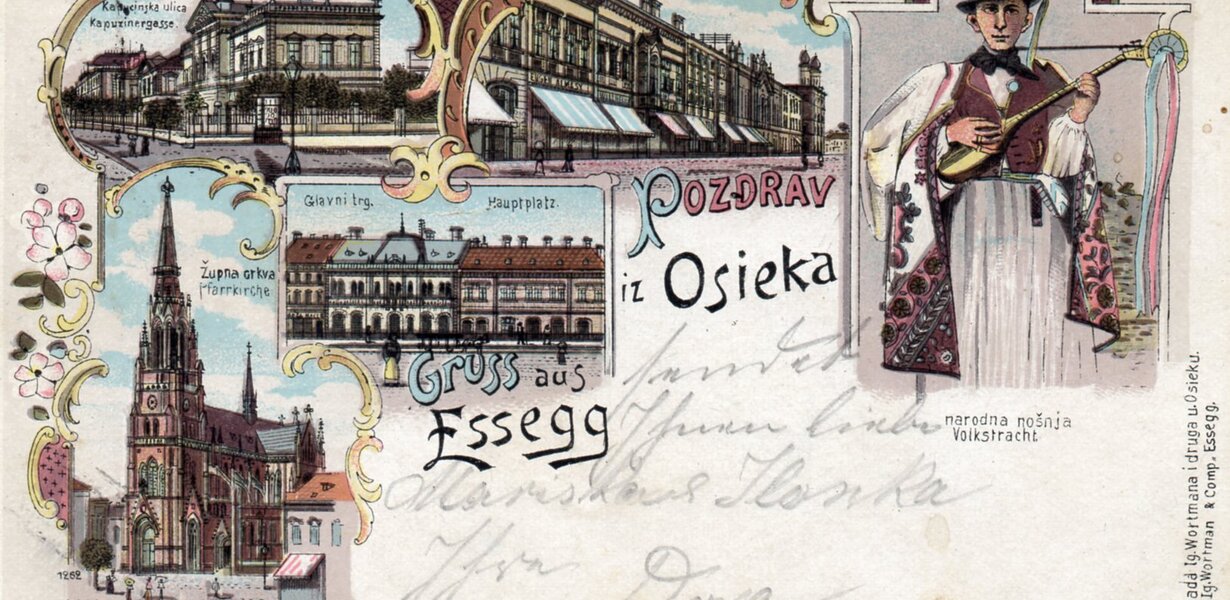 Kapucinska ulica
Kapuzinergasse.
Glavni trg. Hauptplatz.
Župna crkva
Pfarrkirche
POZDRAV
iz Osieka
GRUSS aus
ESSEGG
sendet
Ihnen liebe
Ilonka
Ihre
narodna nošnja
Volkstracht
1262
Ig. Wortmana i druga u Osieku.
Ig. Wortman & Comp., Essegg.